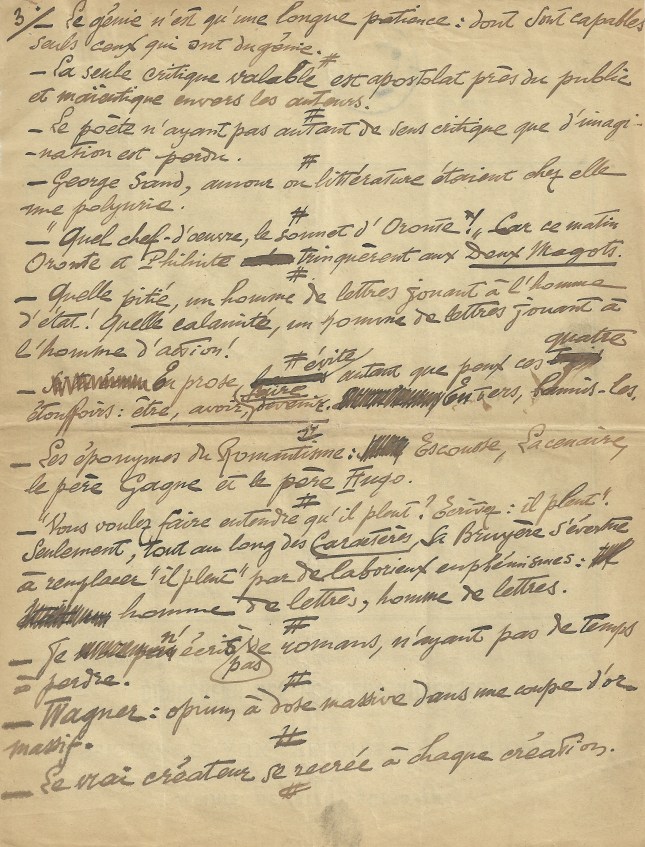 3/ — Le génie n'est qu'une longue patience : dont sont capables
seuls ceux qui ont du génie.
#
— La seule critique valable est apostolat près du public
et maïeutique envers les auteurs.
#
— Le poète n'ayant pas autant de sens critique que d'imagi-
-nation est perdu.
#
— George Sand, amour ou littérature étaient chez elle
une polyurie.
#
— "Quel chef-d'œuvre, le sonnet d'Oronte"! Car ce matin
Oronte et Philinte trinquèrent aux Deux Magots.
#
— Quelle pitié, un homme de lettres jouant à l'homme
d'état! Quelle calamité, un homme de lettres jouant à
l'homme d'action!
#
— En prose, évite autant que peux ces quatre
étouffoirs : être, avoir, faire, devenir. En vers, bannis-les.
#
— Les éponymes du Romantisme : Escousse, Lacenaire,
le père Gagne et le père Hugo.
#
— "Vous voulez faire entendre qu'il pleut? Écrivez : il pleut".
Seulement, tout au long des Caractères, La Bruyère s'évertue
à remplacer "il pleut" par de laborieux euphémismes :
homme de lettres, homme de lettres.
#
— Je n'écris pas de romans, n'ayant pas de temps
à perdre.
#
— Wagner : opium à dose massive dans une coupe d'or
massif.
#
— Le vrai créateur se recrée à chaque création.
#